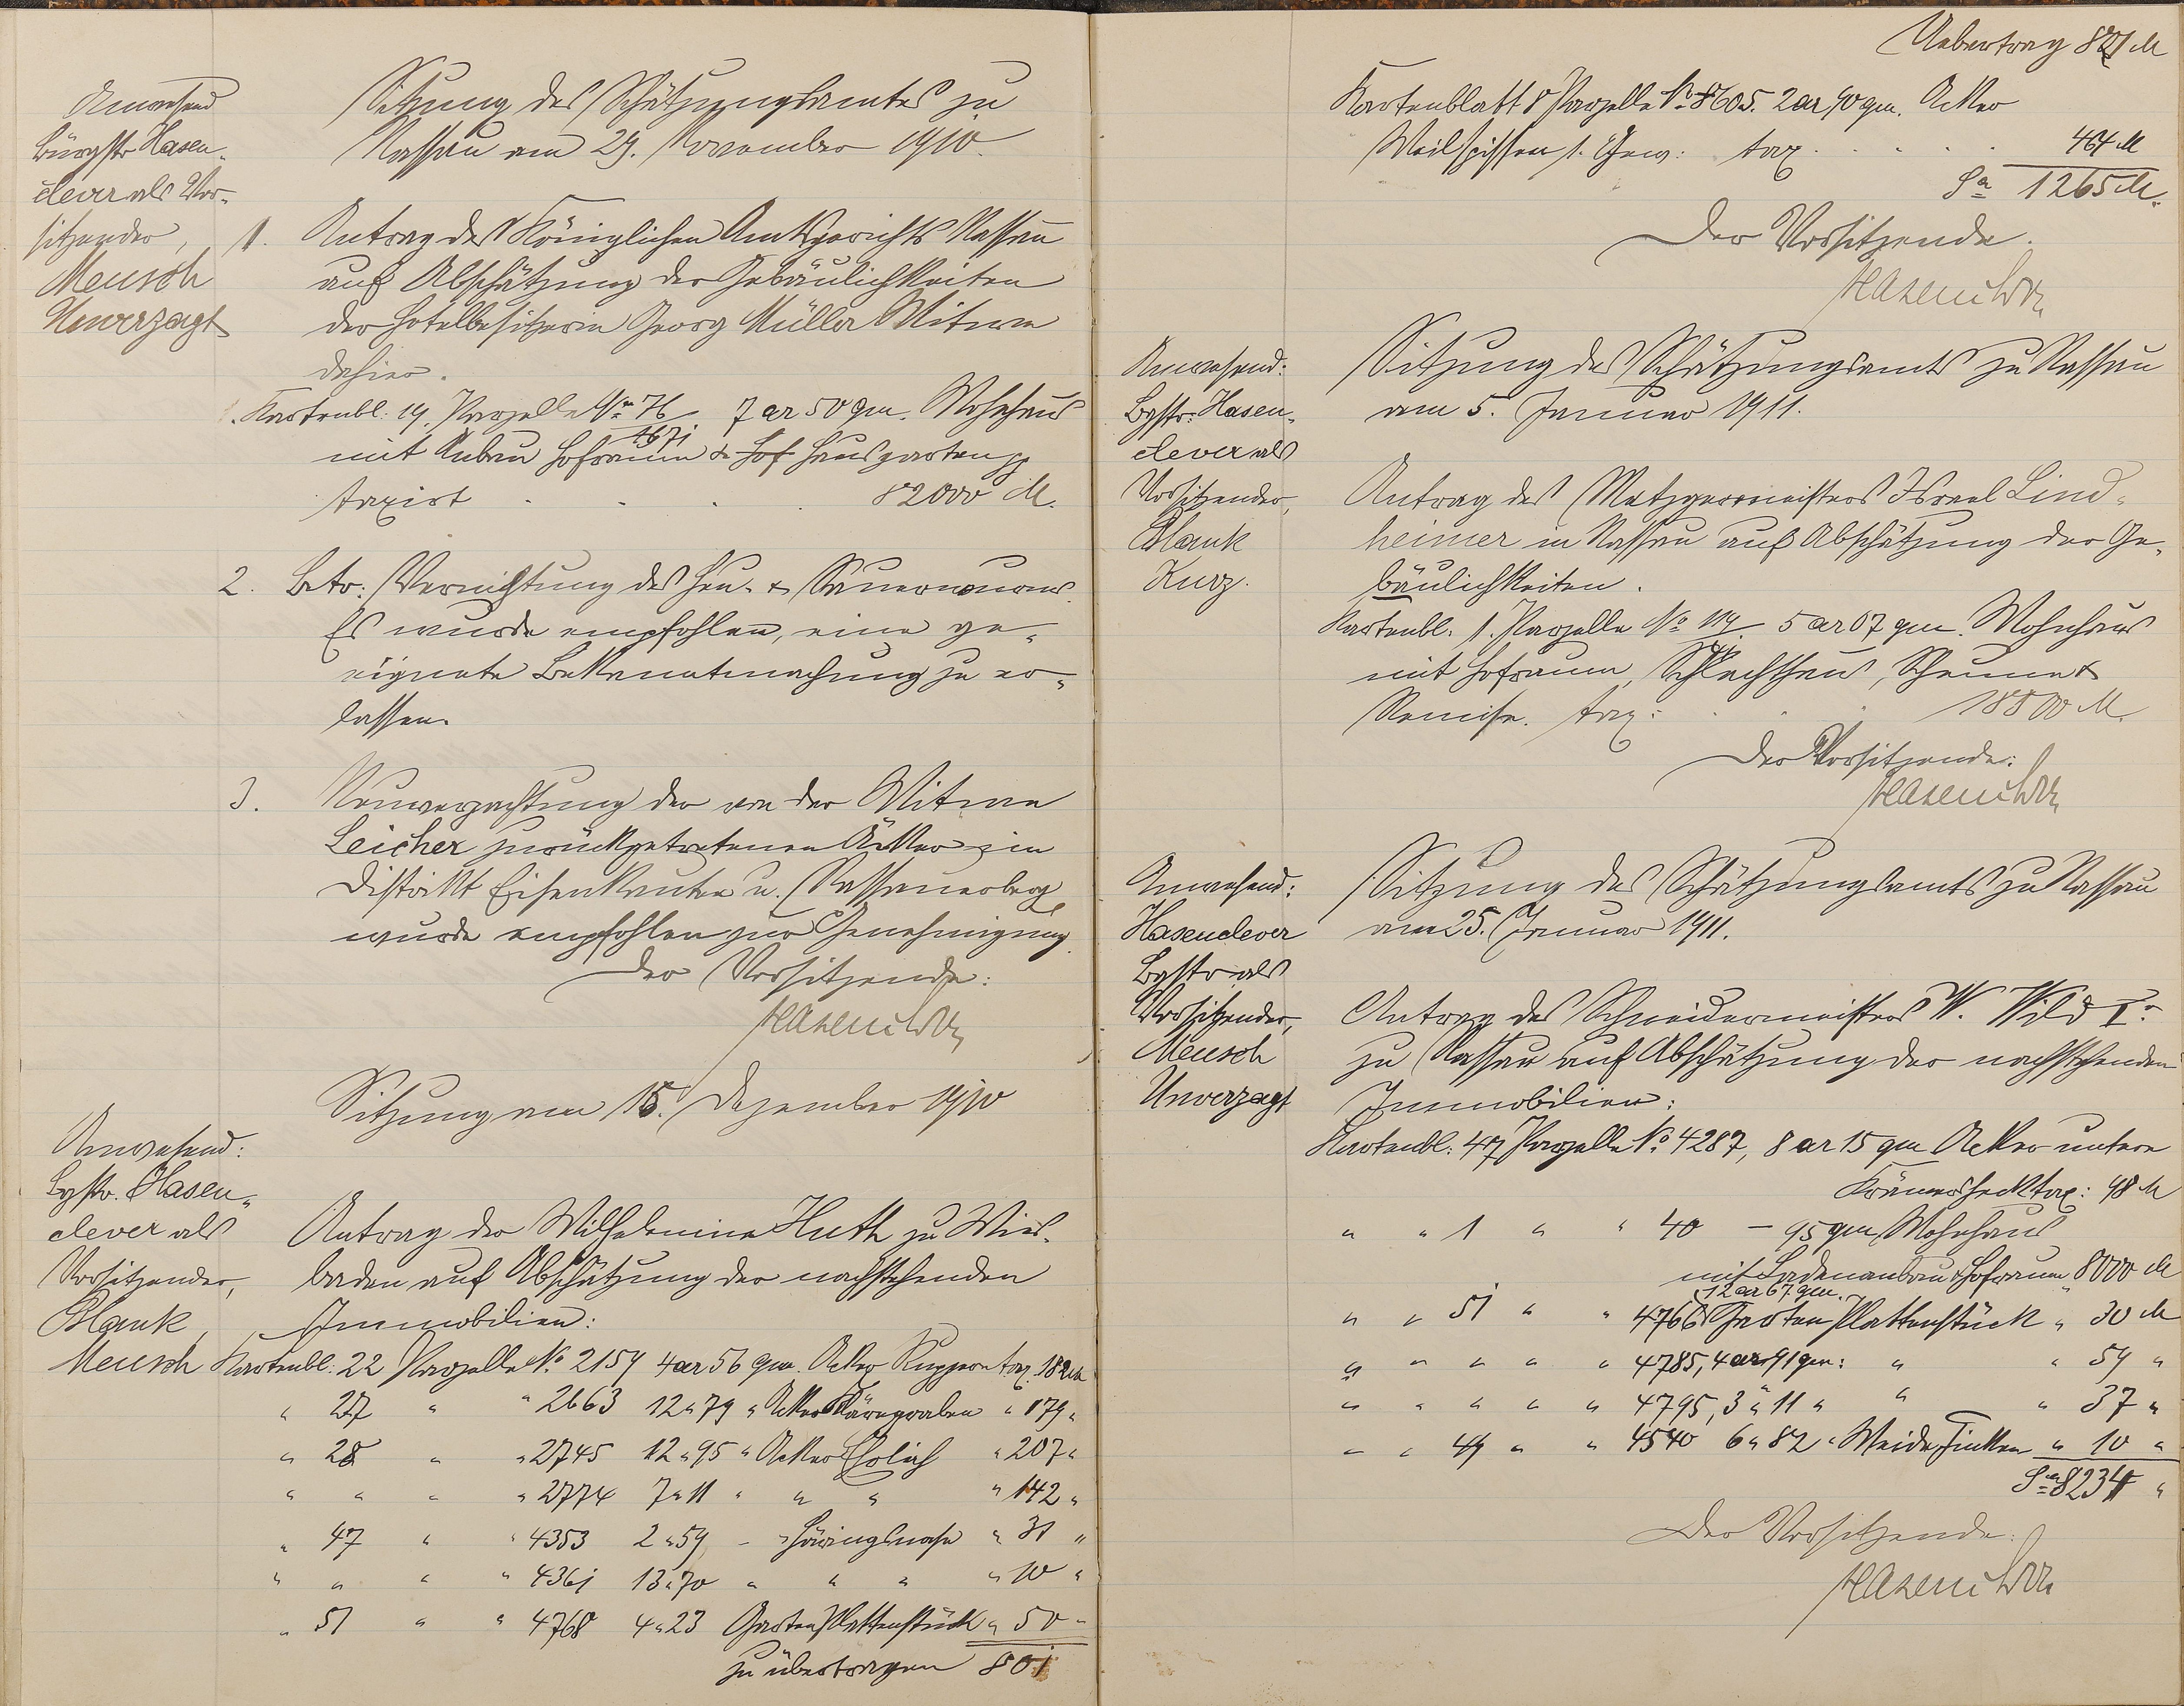 Anwesend
Bürgstr Hasen-
clever als Vor-
sitzender,
Meusch
Unverzagt
Sitzung des Schätzungsamtes zu
Nassau am 29. November 1910.
1. Antrag des Königlichen Amtsgerichts Nassau
auf Abschätzung der Gebäulichkeiten
der Hotelbesitzerin Georg Müller Witwe
dahier.
Kartenbl: 19. Parzelle No 76 7 ar 50 qm. Wohnhaus
1671
mit Anbau Hofraum & Hof Hausgarten
taxirt . . . . 82000 M.
2. Betr: Vernichtung des Heu- & Sauerwurms.
Es wurde empfohlen, eine ge-
eignete Bekanntmachung zu er-
lassen.
3. Neuverpachtung der von der Witwe
Leicher zurückgetretenen Äcker im
Distrikt Eisenkauten u. Nassauerberg
wurde empfohlen zur Genehmigung.
Der Vorsitzende:
Hasenclever
Sitzung am 15. Dezember 1910
Anwesend:
Bgstr. Hasen-
clever als
Vorsitzender,
Blank,
Meusch
Antrag der Wilhelmine Huth zu Wies-
baden auf Abschätzung der nachstehenden
Immobilien:
Kartenbl: 22 Parzelle No 2154 4 ar 56 qm. Acker Ruppern tax. 182 M
" 27 " " 2663 12 " 79 " Acker graben " 179 "
" 28 " " 2745 12 " 95 " Acker Ehrlich " 207 "
" " " " 2774 7 " 11 " " " " 142 "
" 47 " " 4353 2 " 59 " Häringsnase " 31 "
" " " " 4361 13 " 70 " " " " 10 "
" 51 " " 4768 4 " 23 Garten Plattenstück " 50 "
zu übertragen 801
Uebertrag 801 M
Kartenblatt 8 Parzelle No 8605. 2 ar 90 qm. Acker
1. Gew: tax. . . . . 464 M
Sa 1265 M.
Der Vorsitzende.
Hasenclever
Anwesend:
Bgstr. Hasen-
clever als
Vorsitzender,
Blank
Kurz.
Sitzung des Schätzungsamts zu Nassau
am 5. Januar 1911.
Antrag des Metzgermeisters Israel Lind-
heimer in Nassau auf Abschätzung der Ge-
bäulichkeiten.
Kartenbl. 1. Parzelle No 119 5 ar 07 qm. Wohnhaus
mit Hofraum, Schlachthaus, Scheune &
Remise. tax: . . . 18500 M.
Der Vorsitzende:
Hasenclever
Anwesend:
Hasenclever
Bgstr als
Vorsitzender,
Meusch
Unverzagt
Sitzung des Schätzungsamts zu Nassau
am 25. Januar 1911.
Antrag des Schneidermeisters W. Wild Ir
zu Nassau auf Abschätzung der nachstehenden
Immobilien:
Kartenbl: 47 Parzelle No 4287, 8 ar 15 qm Acker untere
Krämersheck tax: 98 M
" " 1 " " 40 - 95 qm Wohnhaus
mit Ladenanbau & Hofraum 8000 M
12 ar 67 qm.
" " 51 " " 4766 Garten Plattenstück " 30 M
" " " " " 4785, 4 ar 91 qm: " " 59 "
" " " " " 4795, 3 " 11 " " " 37 "
" " 49 " " 4540 6 " 82 " Weide Finken " 10 "
Sa 8234 "
Der Vorsitzende:
Hasenclever